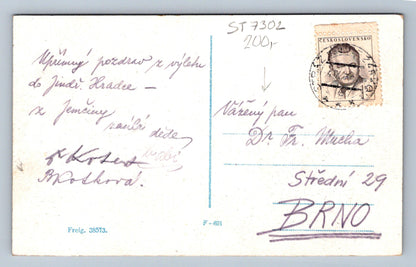 ST 7302
200,-
ČESKOSLOVENSKO
Upřímný pozdrav z výletu
do Jindř. Hradce –
z Jemčiny
zasílá děda
Vážený pan
Dr. Fr. Mucha
Střední 29
BRNO
Freig. 38573.
F - 621